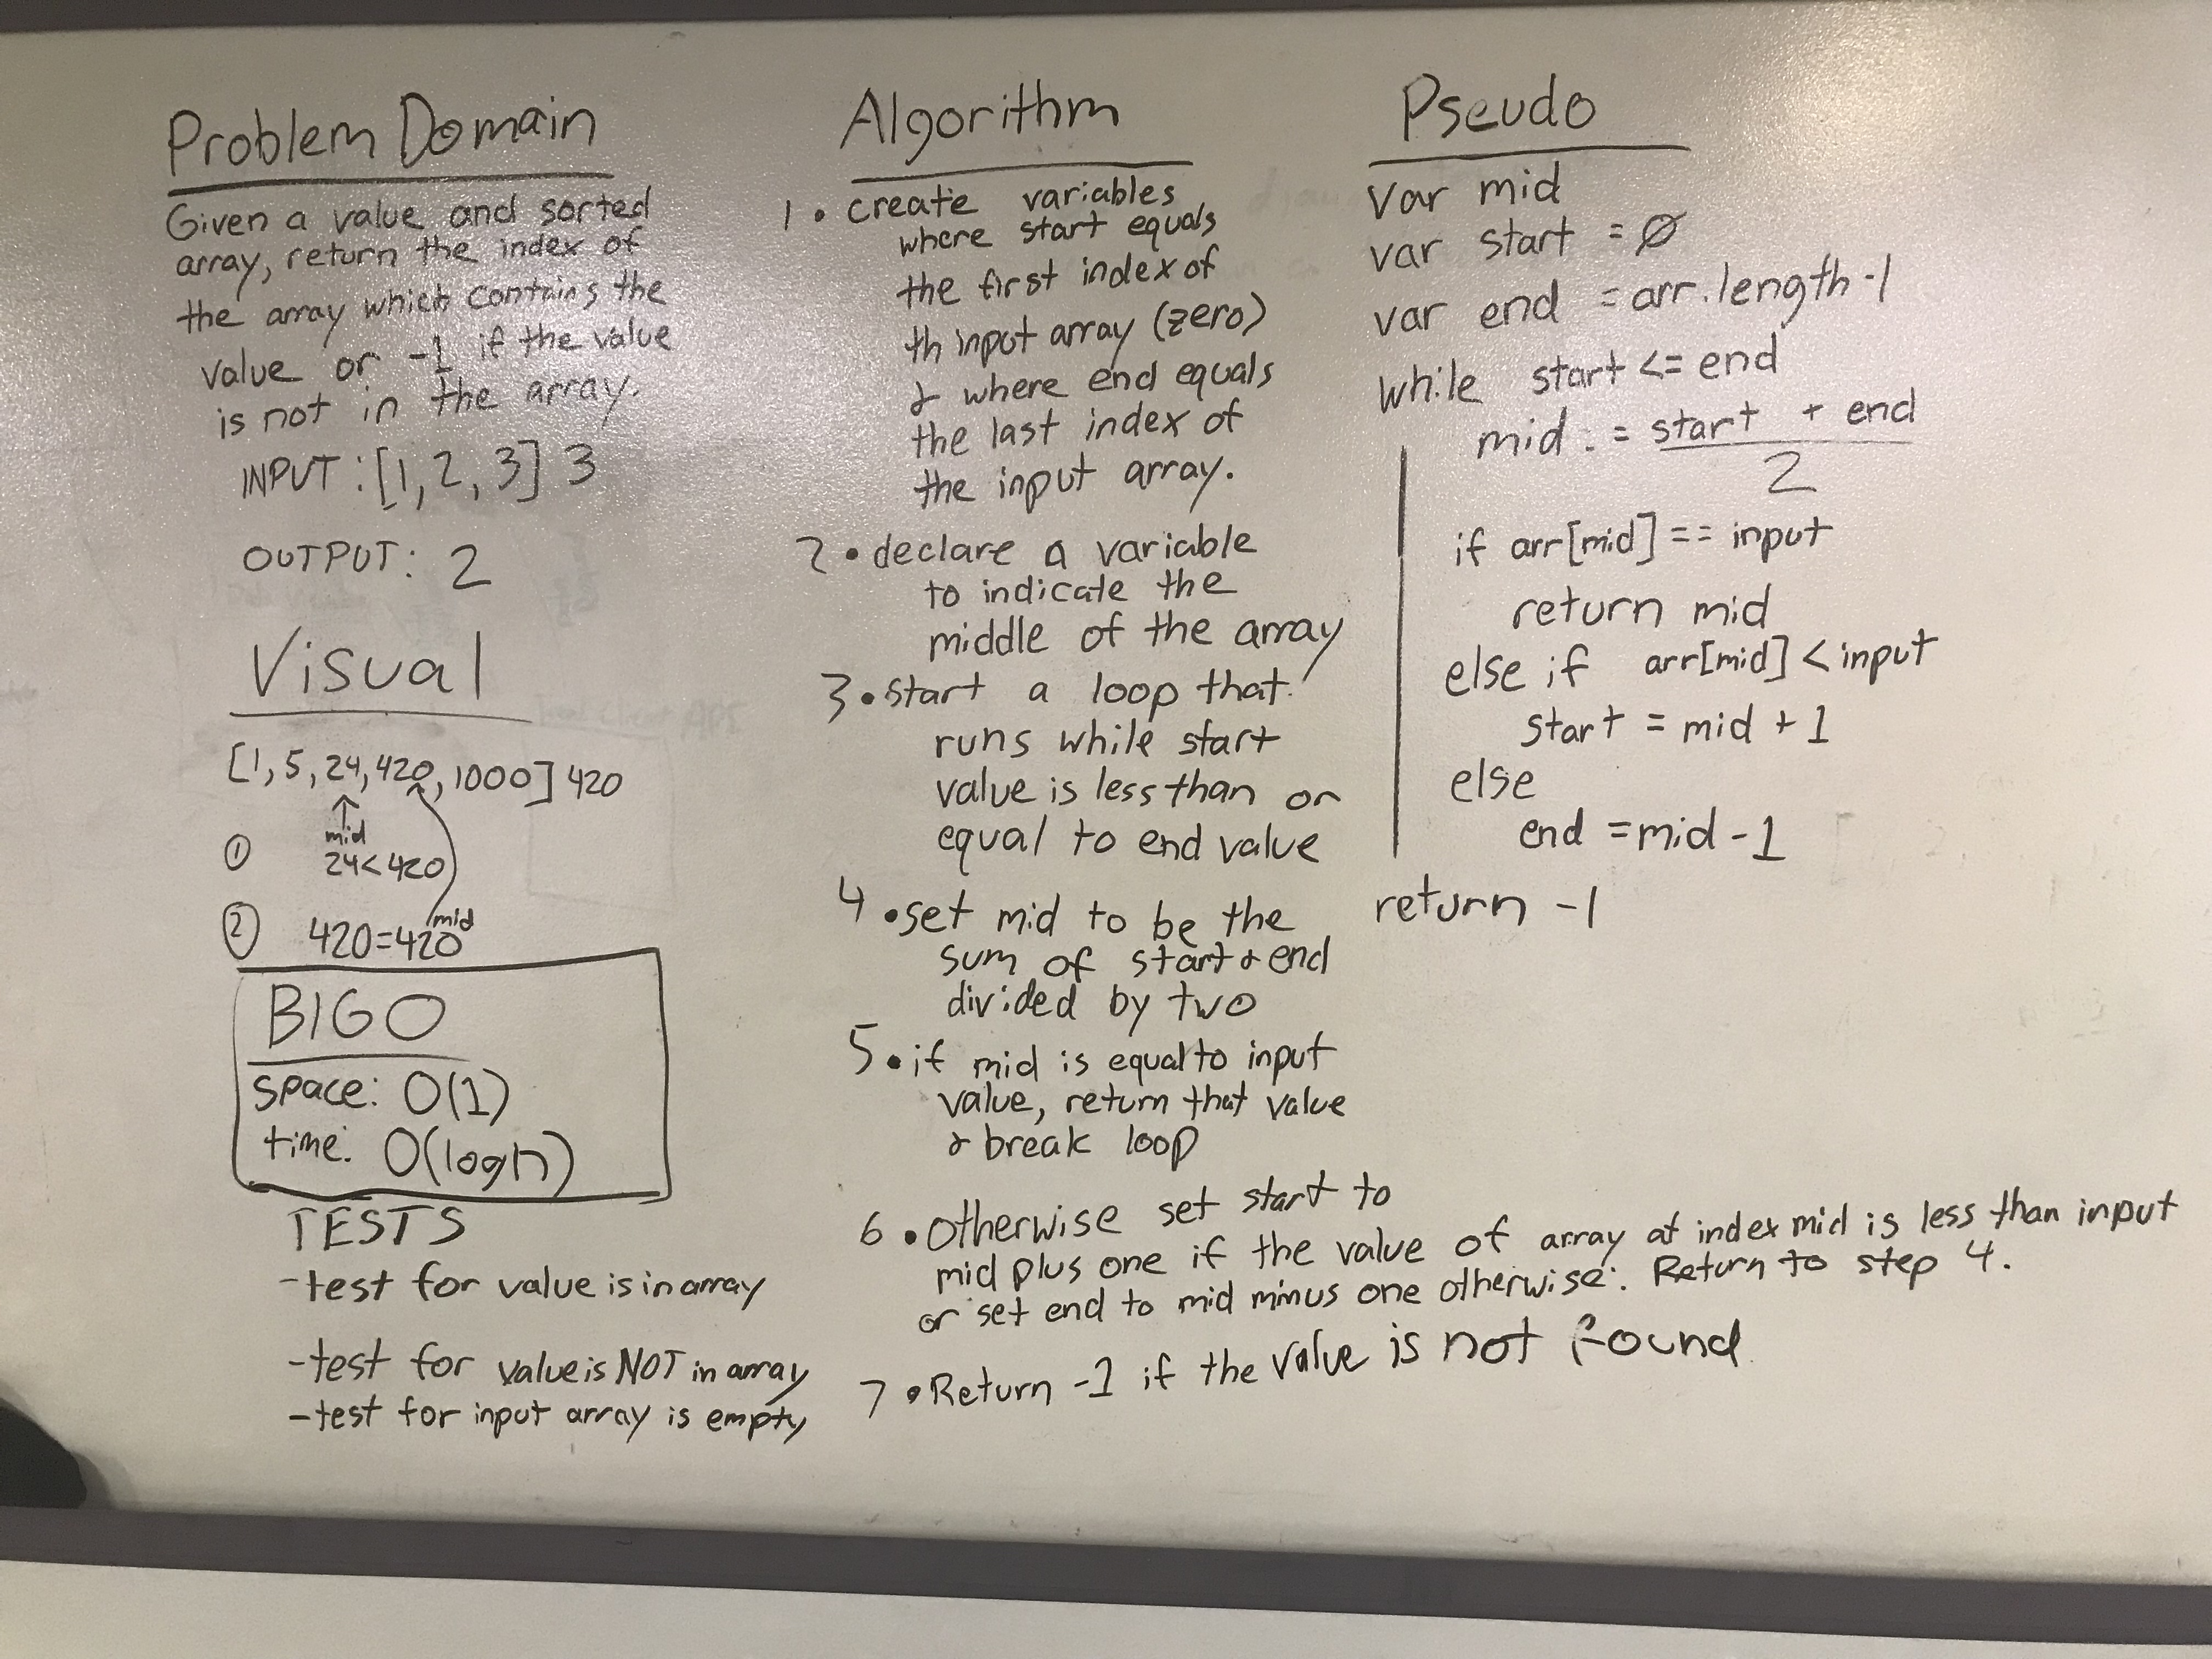 Problem Domain
Given a value and sorted
array, return the index of
the array which contains the
value or -1 if the value
is not in the array.
INPUT: [1, 2, 3] 3
OUTPUT: 2
Visual
[1, 5, 24, 420, 1000] 420
mid
① 24<420
mid
② 420=420
BIGO
space: O(1)
time: O(logn)
TESTS
-test for value is in array
-test for value is NOT in array
-test for input array is empty
Algorithm
1 • create variables
where start equals
the first index of
th input array (zero)
& where end equals
the last index of
the input array.
2 • declare a variable
to indicate the
middle of the array
3 • start a loop that
runs while start
value is less than or
equal to end value
4 • set mid to be the
sum of start & end
divided by two
5 • if mid is equal to input
value, return that value
& break loop
6 • Otherwise set start to
mid plus one if the value of array at index mid is less than input
or set end to mid minus one otherwise. Return to step 4.
7 • Return -1 if the value is not found.
Pseudo
var mid
var start = Ø
var end = arr.length-1
while start <= end
mid := start + end
2
if arr[mid] == input
return mid
else if arr[mid] < input
start = mid + 1
else
end = mid - 1
return -1